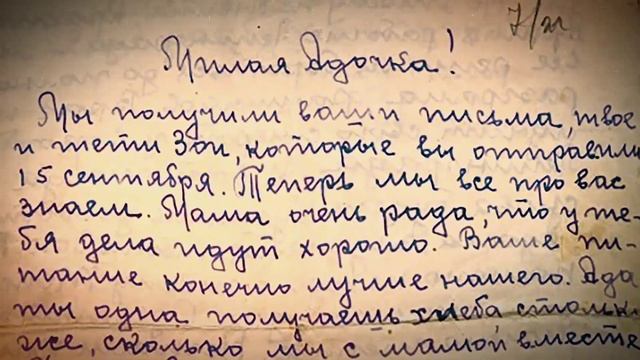 Милая Адочка!
Мы получили ваши письма, твое
и тети Зои, которые вы отправили
15 сентября. Теперь мы все про вас
знаем. Мама очень рада, что у те-
бя дела идут хорошо. Ваше пи-
тание конечно лучше нашего. Ада
ты одна получаешь хлеба столько
же, сколько мы с мамой вместе